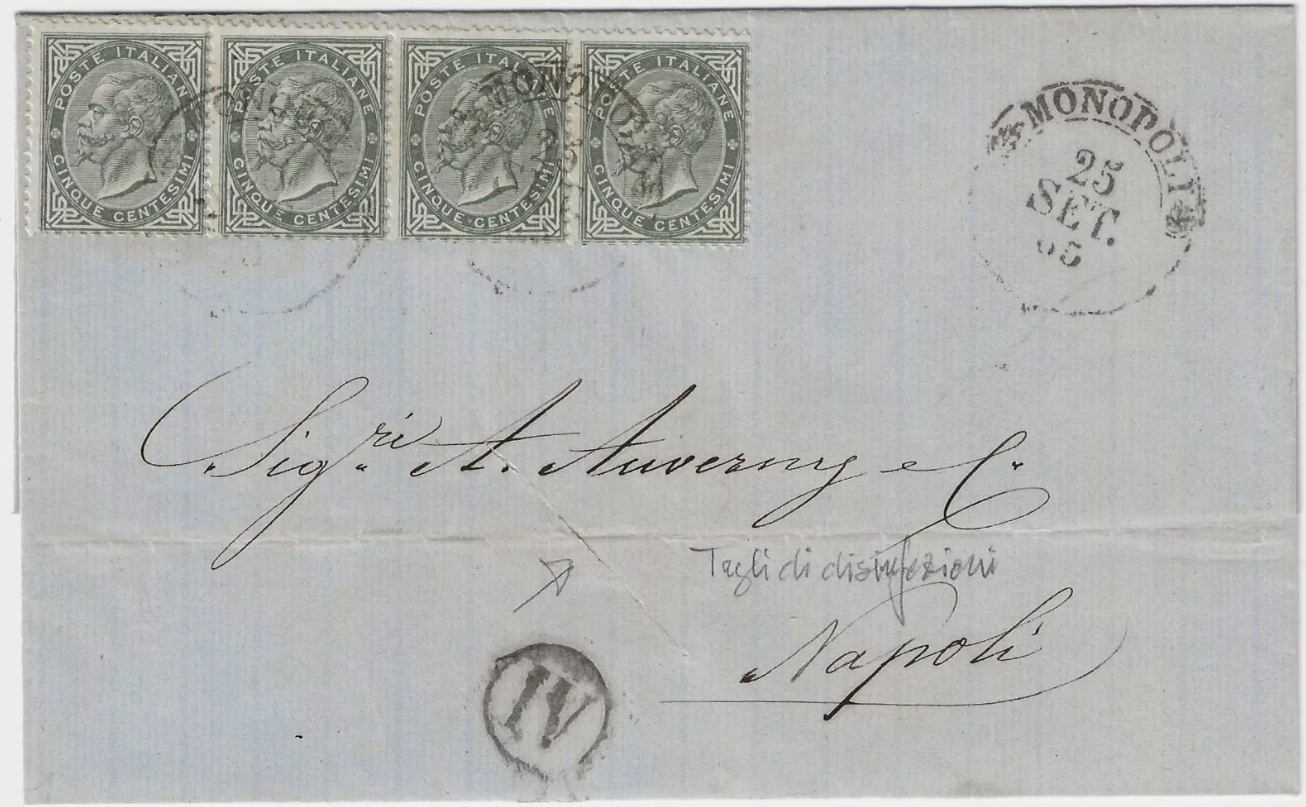 POSTE ITALIANE CINQUE CENTESIMI
POSTE ITALIANE CINQUE CENTESIMI
POSTE ITALIANE CINQUE CENTESIMI
POSTE ITALIANE CINQUE CENTESIMI
MONOPOLI
MONOPOLI
25
SET.
65
Sig.ri A. Auverny e C.
Tagli di disinfezioni
Napoli
IV